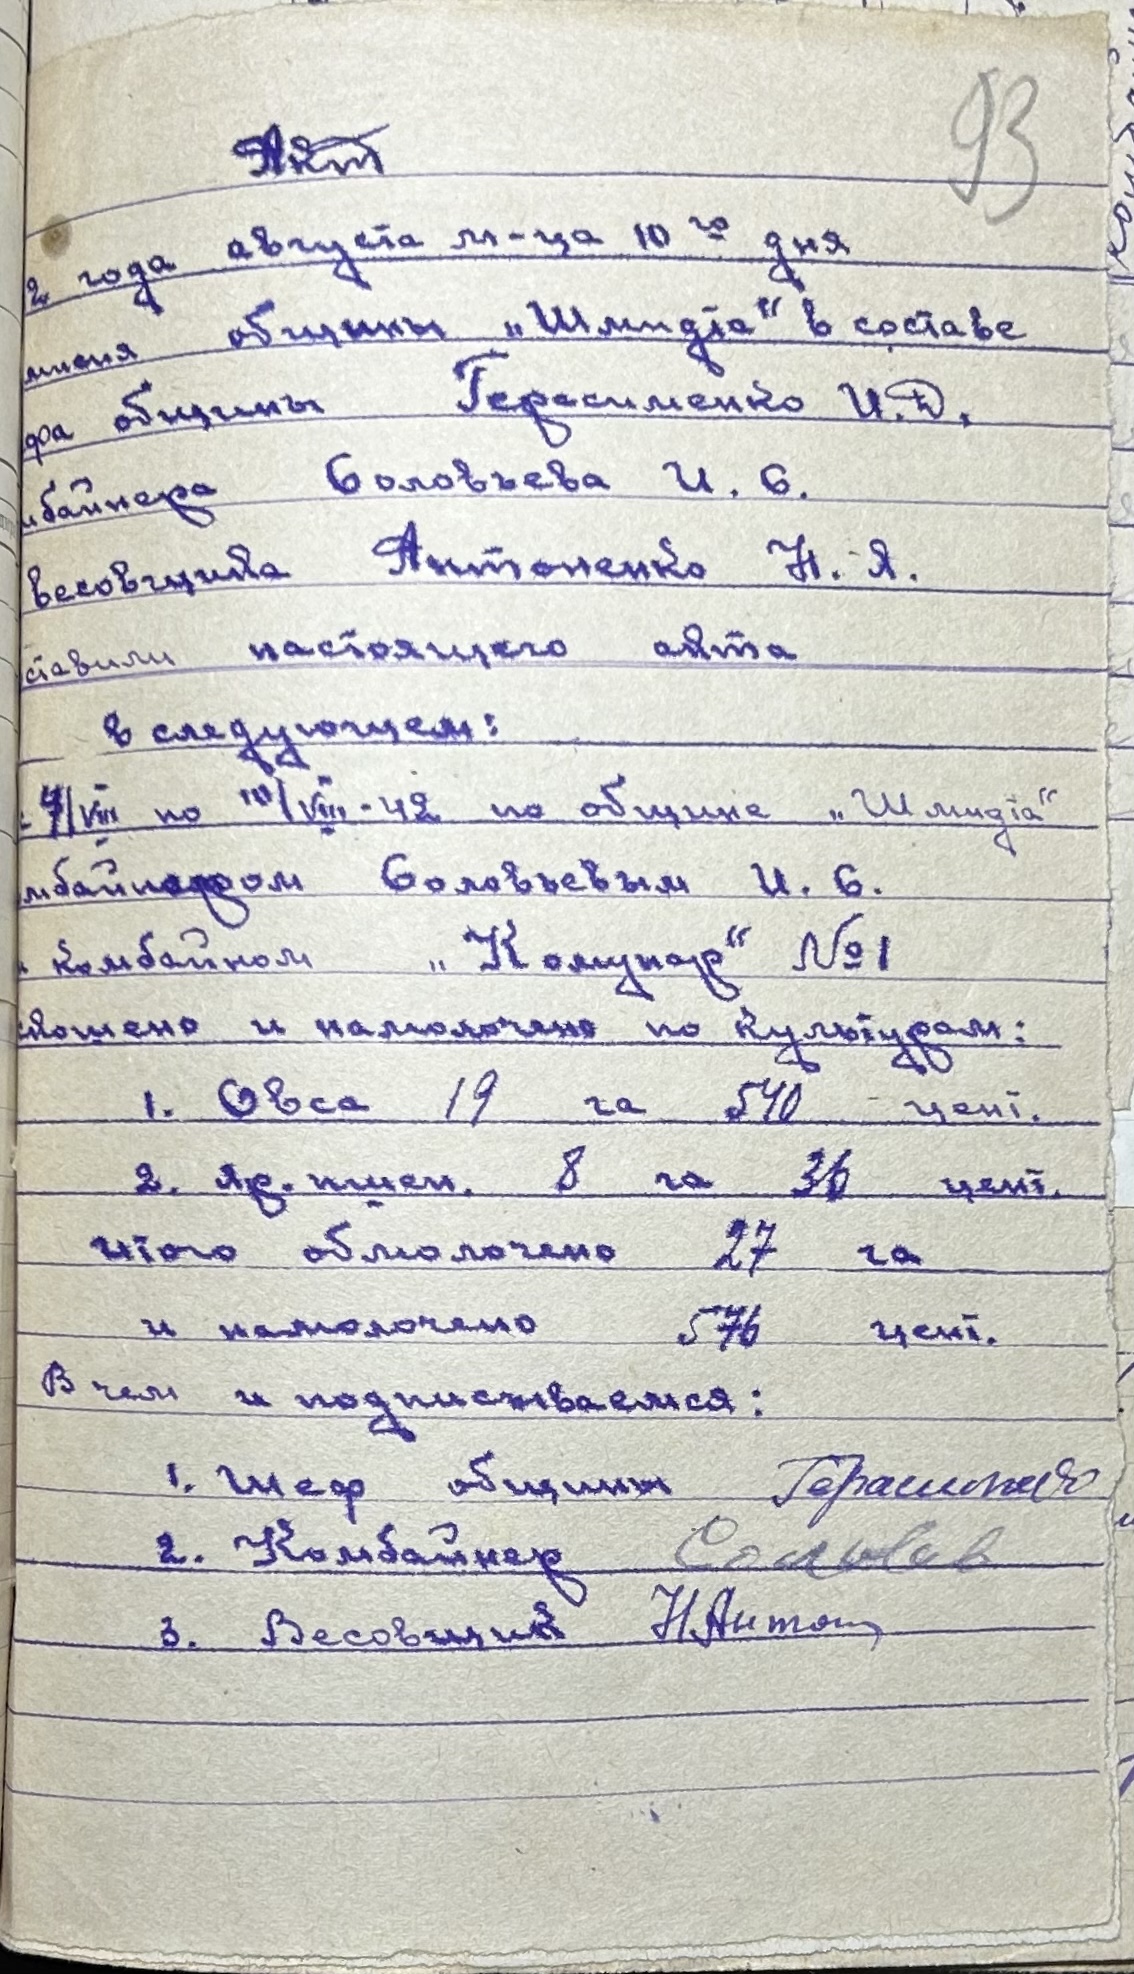 93
Акт
2 года августа м-ца 10го дня
мисия общины „Шмидта“ в составе
фа общины Герасименко И.Д.
мбайнера Соловьева И. С.
весовщика Антоненко Н. Я.
ставили настоящего акта
в следующем:
с 4/VIII по 10/VIII-42 по общине „Шмидта“
мбайнером Соловьевым И. С.
комбайном „Комунар“ №1
скошено и намолочено по культурам:
1. Овса 19 га 540 цент.
2. яр. пшен. 8 га 36 цент.
итого обмолочено 27 га
и намолочено 576 цент.
В чем и подписываемся:
1. Шеф общины Герасименко
2. Комбайнер Соловьев
3. Весовщик Н.Антон